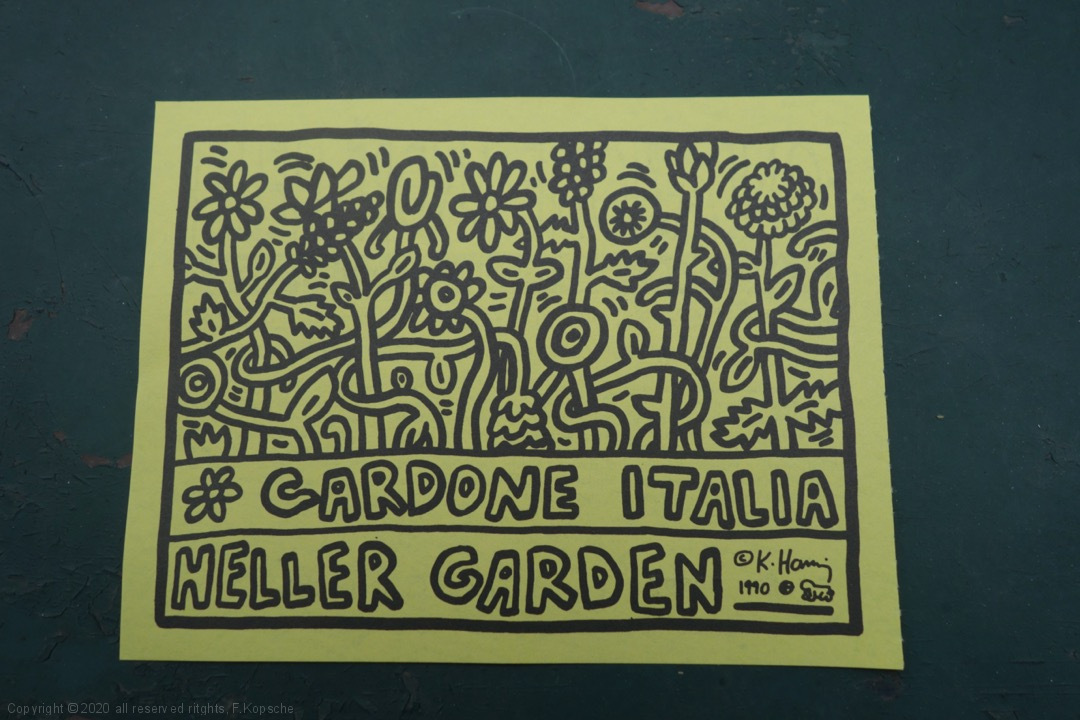 CARDONE ITALIA
HELLER GARDEN
© K. Haring
1990 ©
Copyright © 2020 all reserved ritghts, F.Kopsche